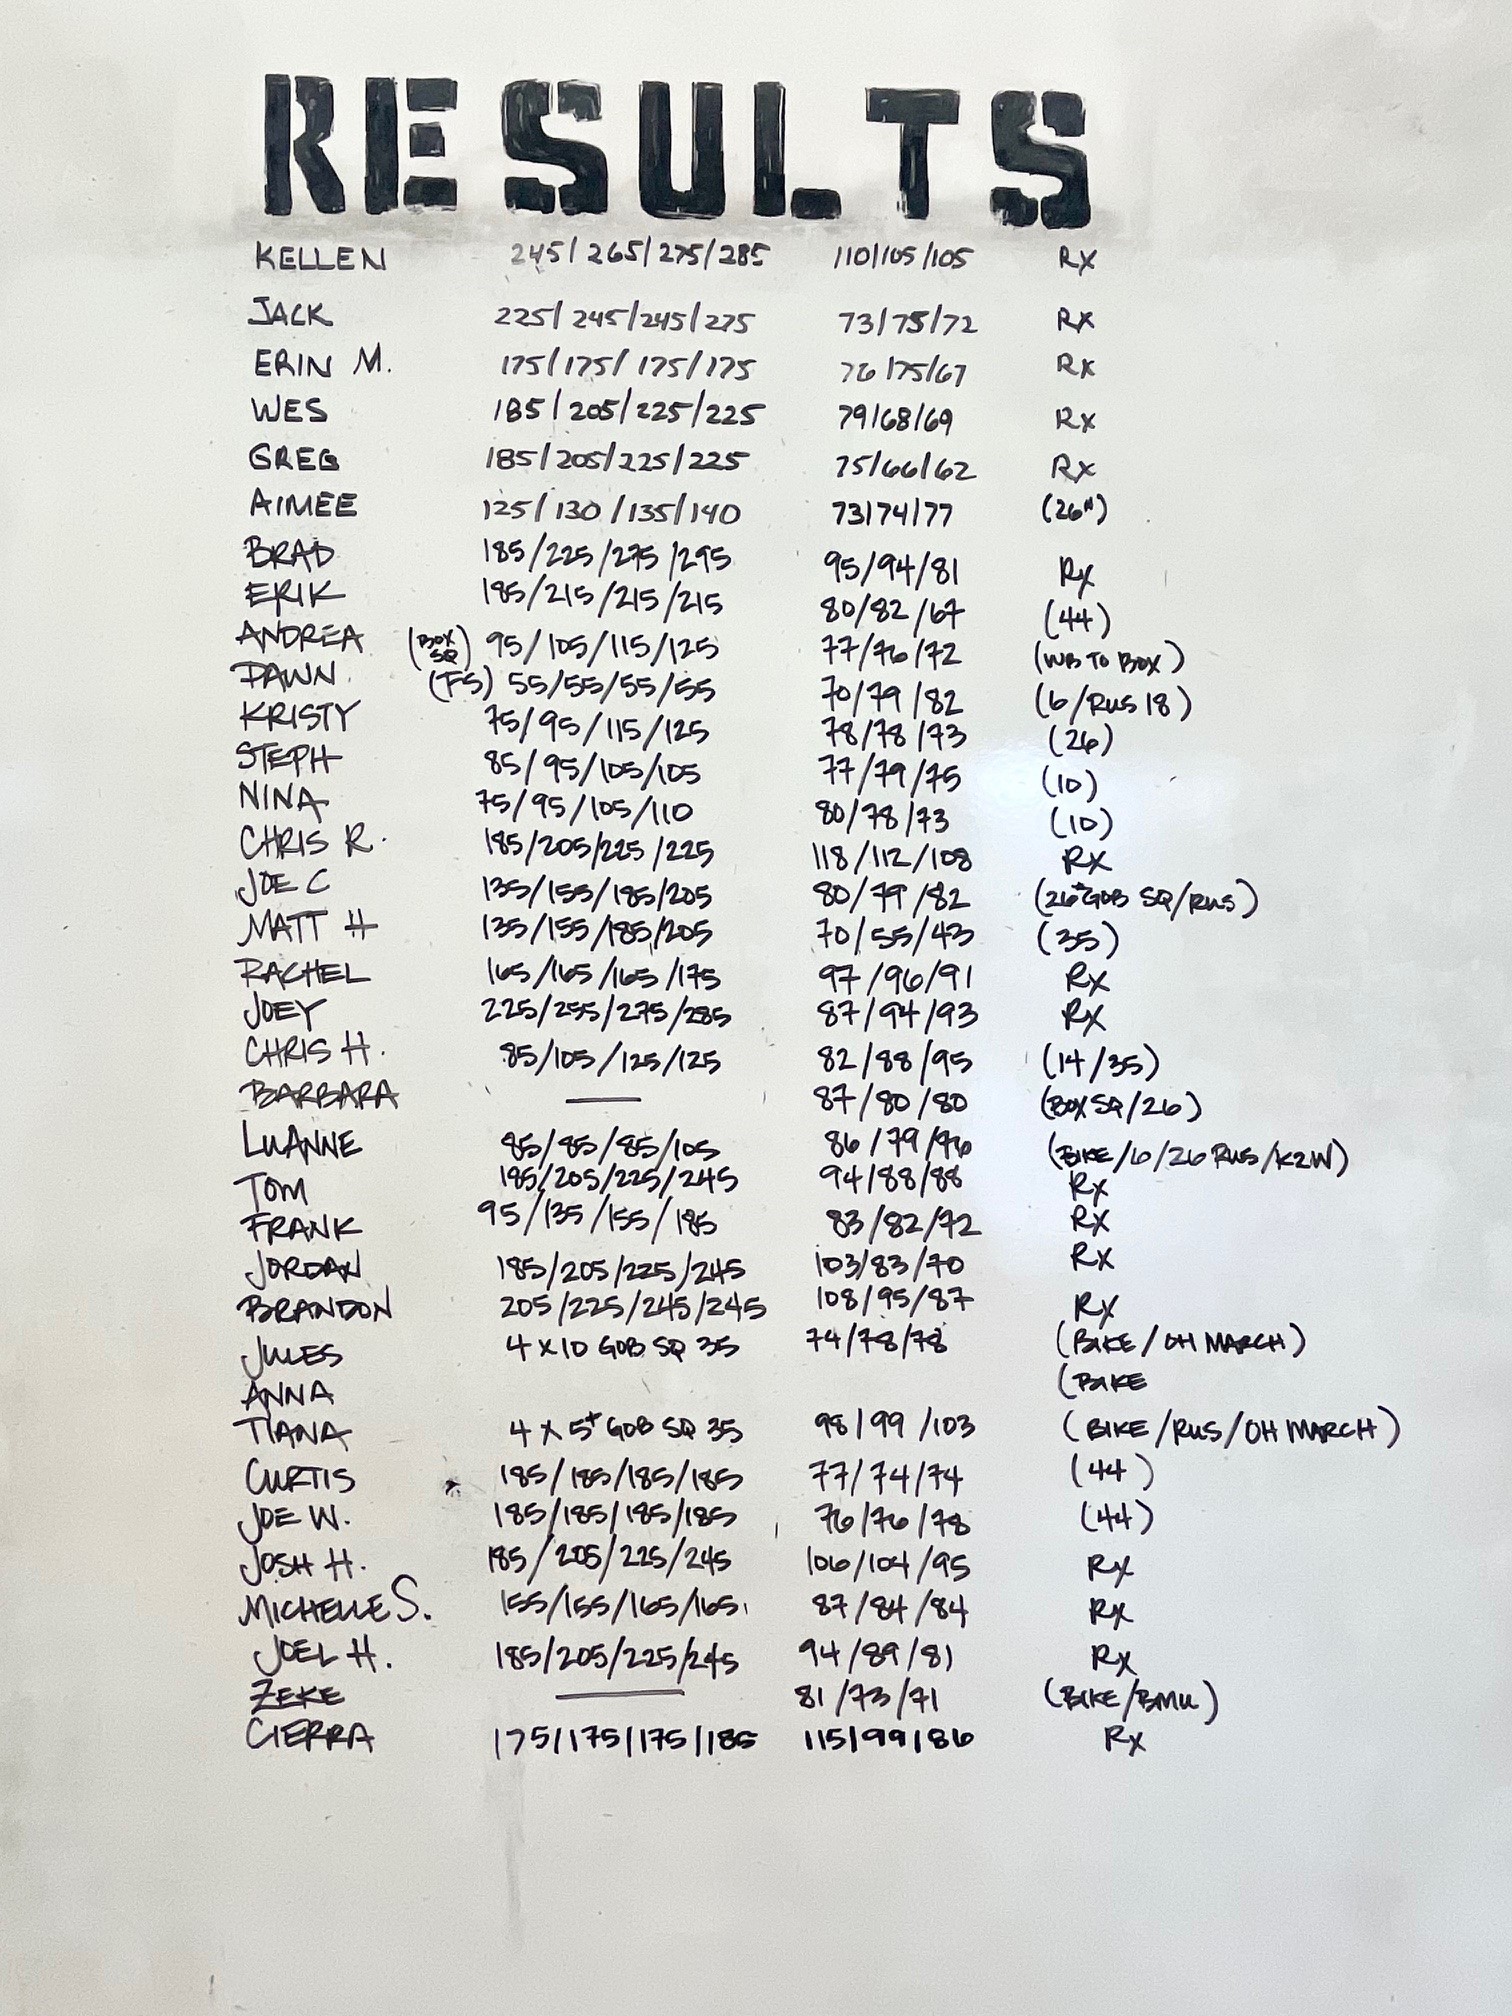 RESULTS
KELLEN 245/265/275/285 110/105/105 RX
JACK 225/245/245/275 73/75/72 RX
ERIN M. 175/175/175/175 76/75/67 RX
WES 185/205/225/225 79/68/69 RX
GREG 185/205/225/225 75/66/62 RX
AIMEE 125/130/135/140 73/74/77 (26")
BRAD 185/225/275/295 95/94/81 RX
ERIK 185/215/215/215 80/82/67 (44)
ANDREA (BOX SQ) 95/105/115/125 77/76/72 (WB TO BOX)
DAWN (FS) 55/55/55/55 70/79/82 (6/RUS 18)
KRISTY 75/95/115/125 78/78/73 (26)
STEPH 85/95/105/105 77/79/75 (10)
NINA 75/95/105/110 80/78/73 (10)
CHRIS R. 185/205/225/225 118/112/108 RX
JOE C 135/155/185/205 80/79/82 (26# GOB SQ/RUS)
MATT H 135/155/185/205 70/55/43 (35)
RACHEL 165/165/165/175 97/96/91 RX
JOEY 225/255/275/285 87/94/93 RX
CHRIS H. 85/105/125/125 82/88/95 (14/35)
BARBARA — 87/80/80 (BOX SQ/26)
LUANNE 85/85/85/105 86/79/76 (BIKE/6/26 RUS/K2W)
TOM 185/205/225/245 94/88/88 RX
FRANK 95/135/155/185 83/82/72 RX
JORDAN 185/205/225/245 103/83/70 RX
BRANDON 205/225/245/245 108/95/87 RX
JULES 4 x 10 GOB SQ 35 74/78/78 (BIKE/OH MARCH)
ANNA (BIKE
TIANA 4 x 5+ GOB SQ 35 98/99/103 (BIKE/RUS/OH MARCH)
CURTIS 185/185/185/185 77/74/74 (44)
JOE W. 185/185/185/185 76/76/78 (44)
JOSH H. 185/205/225/245 106/104/95 RX
MICHELLE S. 155/155/165/165 87/84/84 RX
JOEL H. 185/205/225/245 94/89/81 RX
ZEKE — 81/73/71 (BIKE/BMU)
CIERRA 175/175/175/185 115/99/86 RX